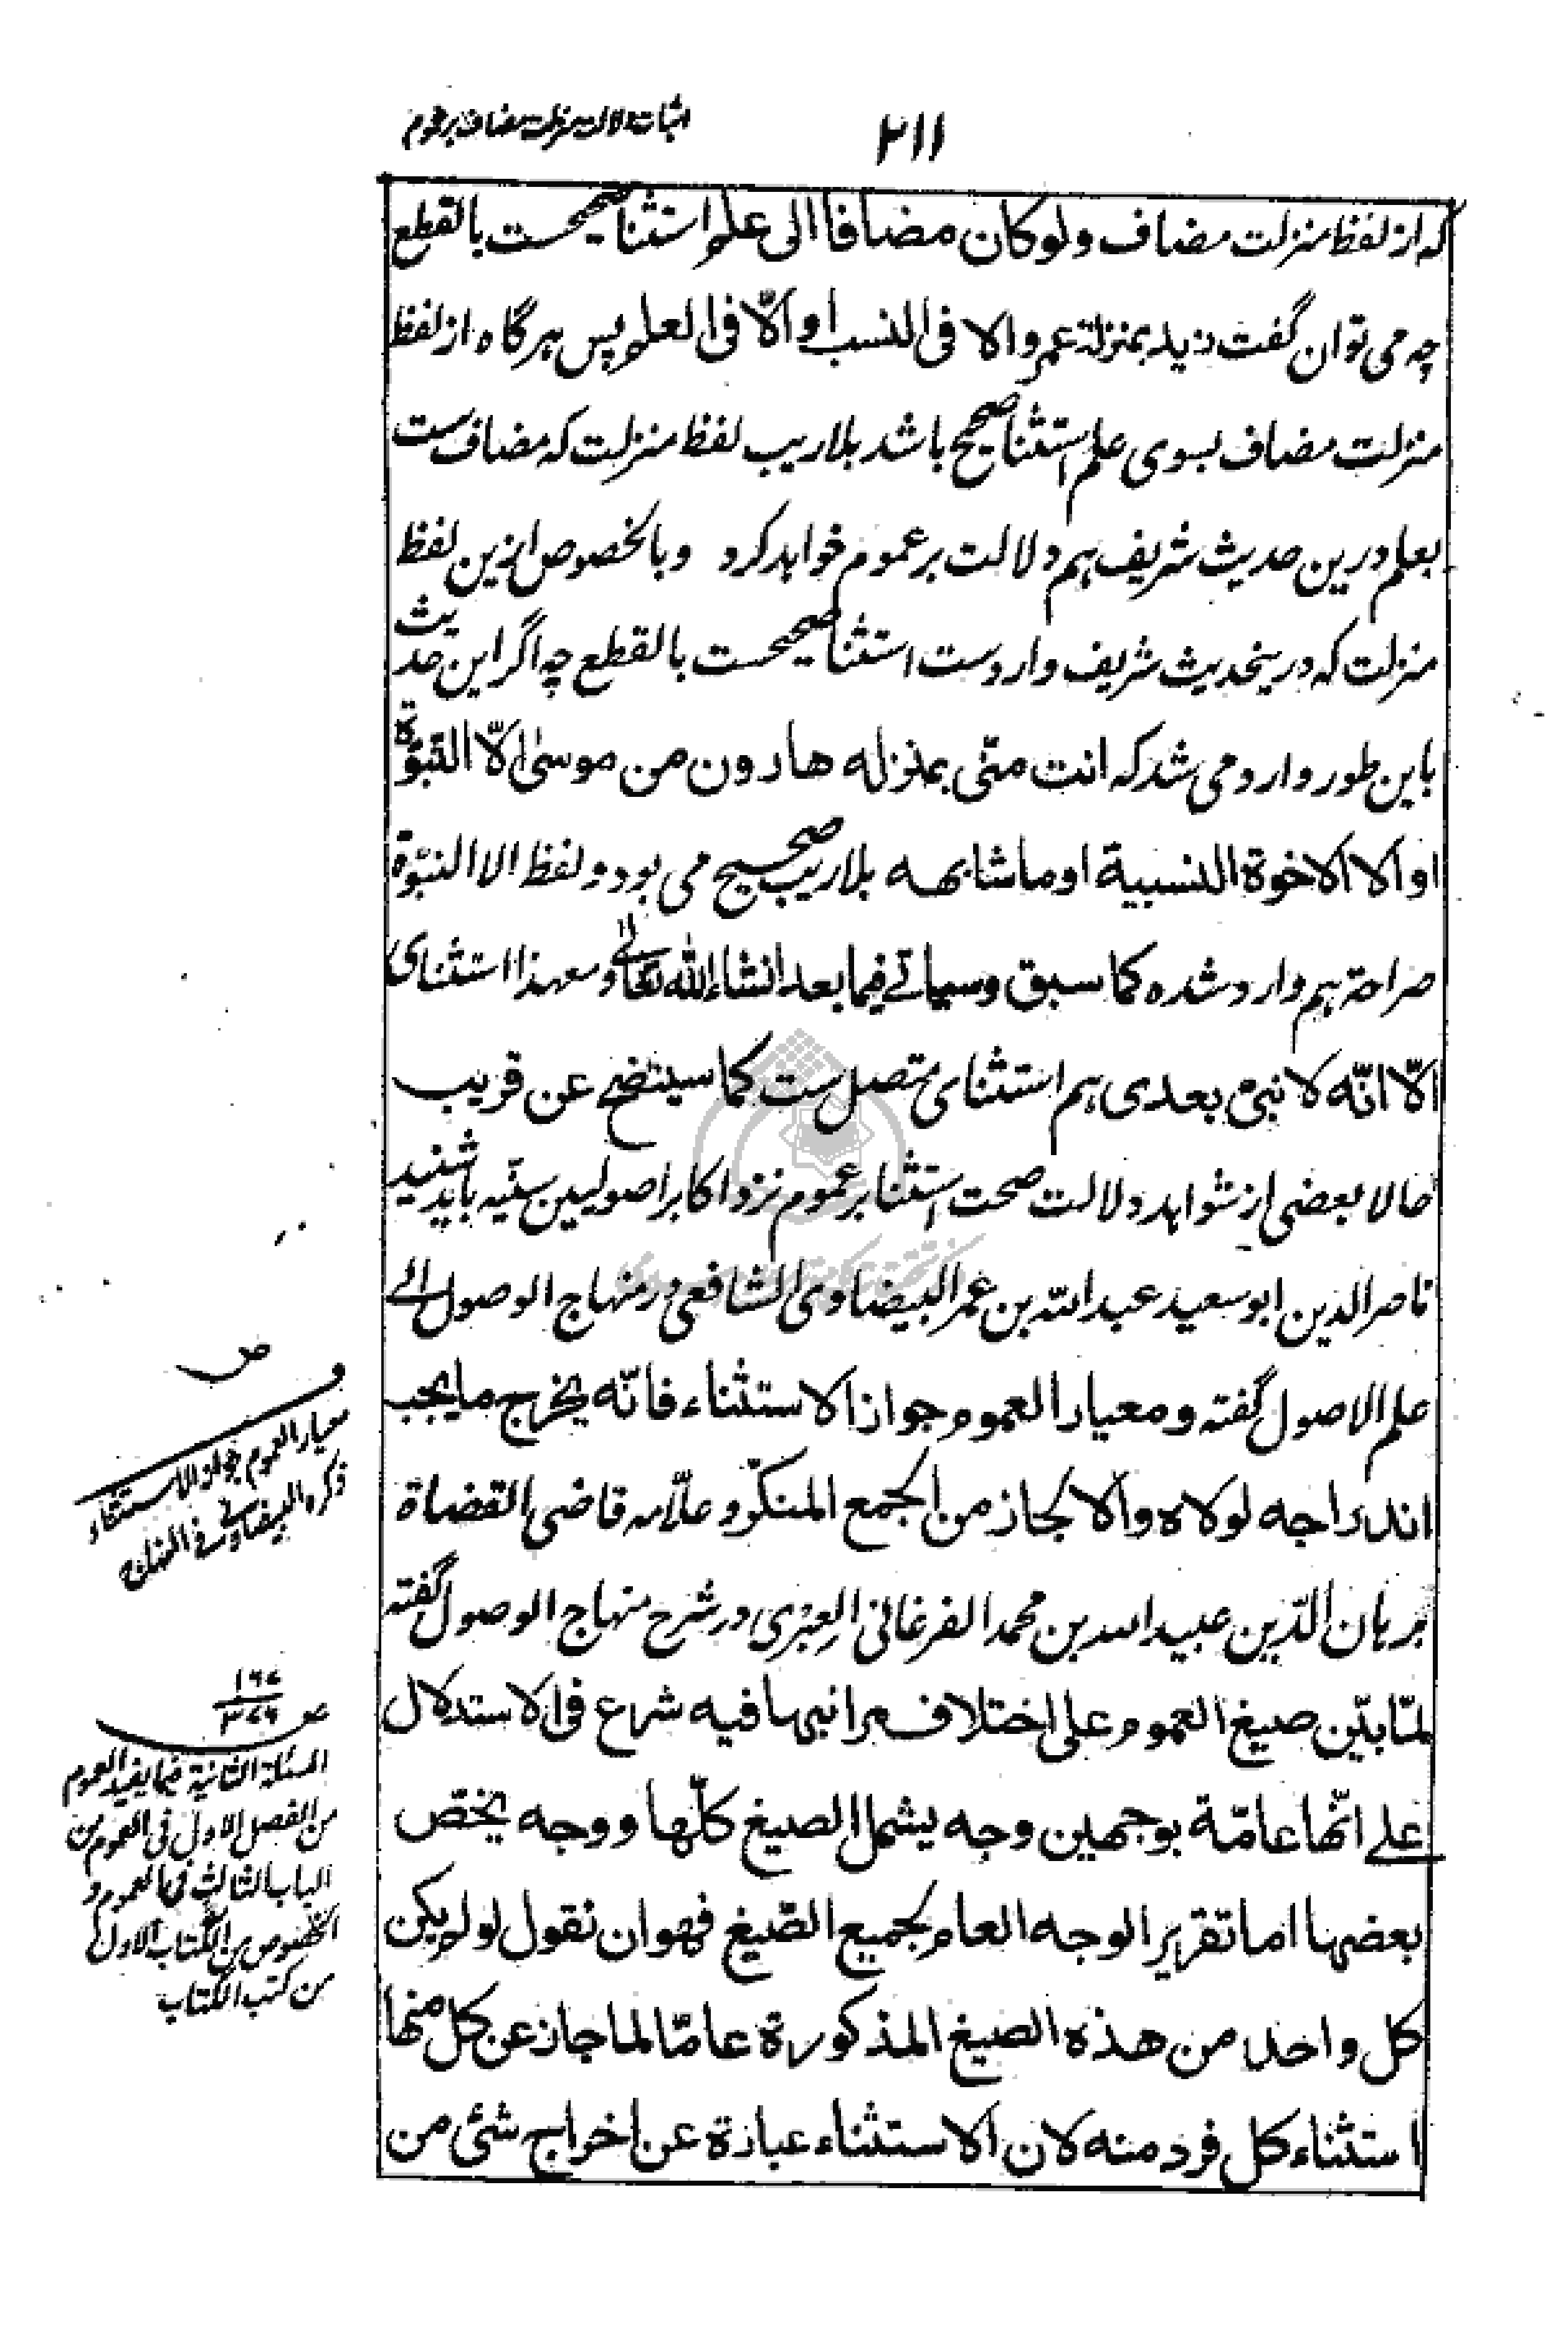 ٢١١
اثبات دلالت منزلت مضاف بر عموم
که از لفظ منزلت مضاف ولو کان مضافا الی علم استثنا صحیحست بالقطع
چه می توان گفت زید بمنزلة عمرو الا فی النسب او الّا فی العلم پس هرگاه از لفظ
منزلت مضاف بسوی علم استثنا صحیح باشد بلاریب لفظ منزلت که مضاف ست
بعلم درین حدیث شریف هم دلالت بر عموم خواهد کرد و بالخصوص ازین لفظ
منزلت که درینحدیث شریف واردست استثنا صحیحست بالقطع چه اگر این حدیث
باین طور وارد می شد که انت منّی بمنزله هارون من موسیٰ الّا النبوّة
او الا الاخوة النسبیة او ما شابهه بلاریب صحیح می بود و لفظ الا النبوّة
صراحة هم وارد شده کما سبق وسیاتے فیما بعد انشاء الله تعالیٰ و معهذا استثنای
الّا انّه لا نبیّ بعدی هم استثنای متصل ست کما سیتضح عن قریب
حالا بعضی از شواهد دلالت صحت استثنا بر عموم نزد اکابر اصولیین سنّیه باید شنید
ناصر الدین ابو سعید عبد الله بن عمر البیضاوی الشافعی در منهاج الوصول الے
علم الاصول گفته و معیار العموم جواز الاستثناء فانّه یخرج ما یجب
اندراجه لولاه والا لجاز من الجمع المنکّر و علّامه قاضی القضاة
برهان الدّین عبید الله بن محمد الفرغانی العِبْری در شرح منهاج الوصول گفته
لمّا بیّن صیغ العموم علی اختلاف مراتبها فیه شرع فی الاستدلال
علے انّها عامّة بوجهین وجه یشمل الصیغ کلّها و وجه یخصّ
بعضها اما تقریر الوجه العام لجمیع الصّیغ فهو ان نقول لو لم یکن
کل واحد من هذه الصیغ المذکورة عامّا لما جاز عن کل منها
استثناء کل فرد منه لان الاستثناء عبارة عن اخراج شئ من
ص
ف
معیار العموم جواز الاستثناء
ذکره البیضاوی فی المنهاج
ص
المسئلة الثانیة فیما یفید العموم
من الفصل الاول فی العموم من
الباب الثالث فی العموم و
الخصوص من الکتاب الاول
من کتب الکتاب